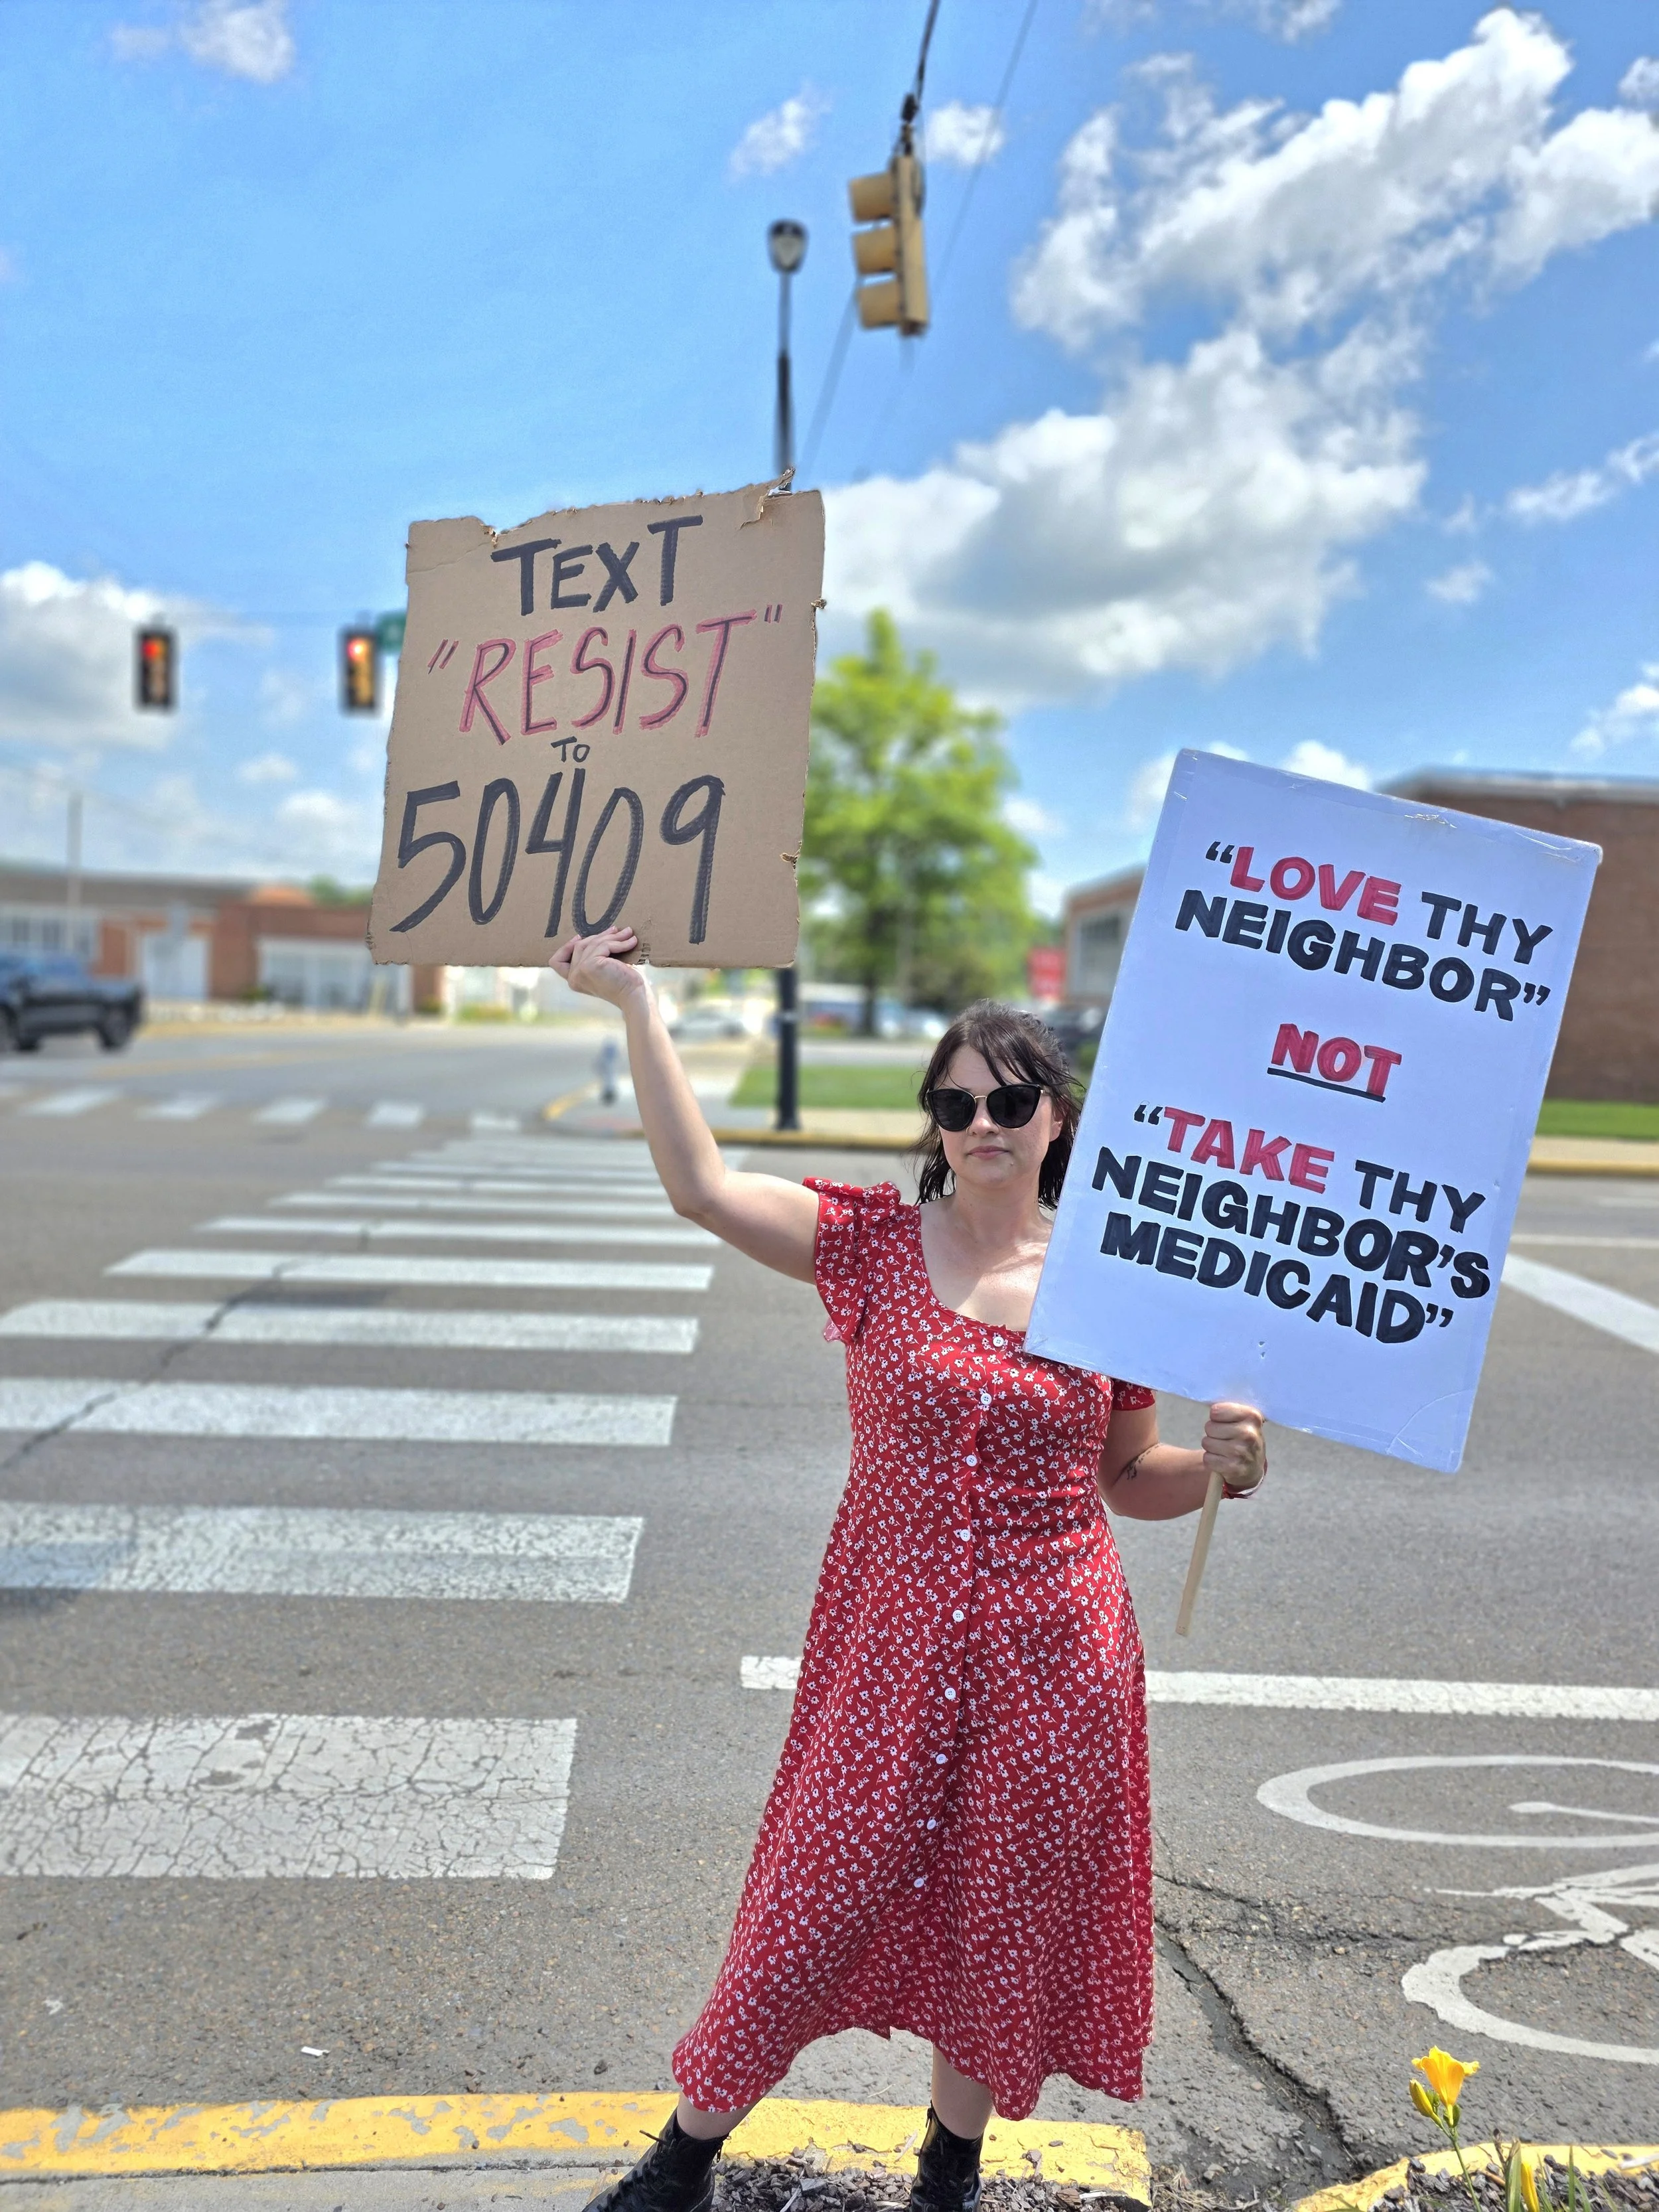 TEXT
"RESIST"
TO
50409
“LOVE THY
NEIGHBOR”
NOT
“TAKE THY
NEIGHBOR’S
MEDICAID”